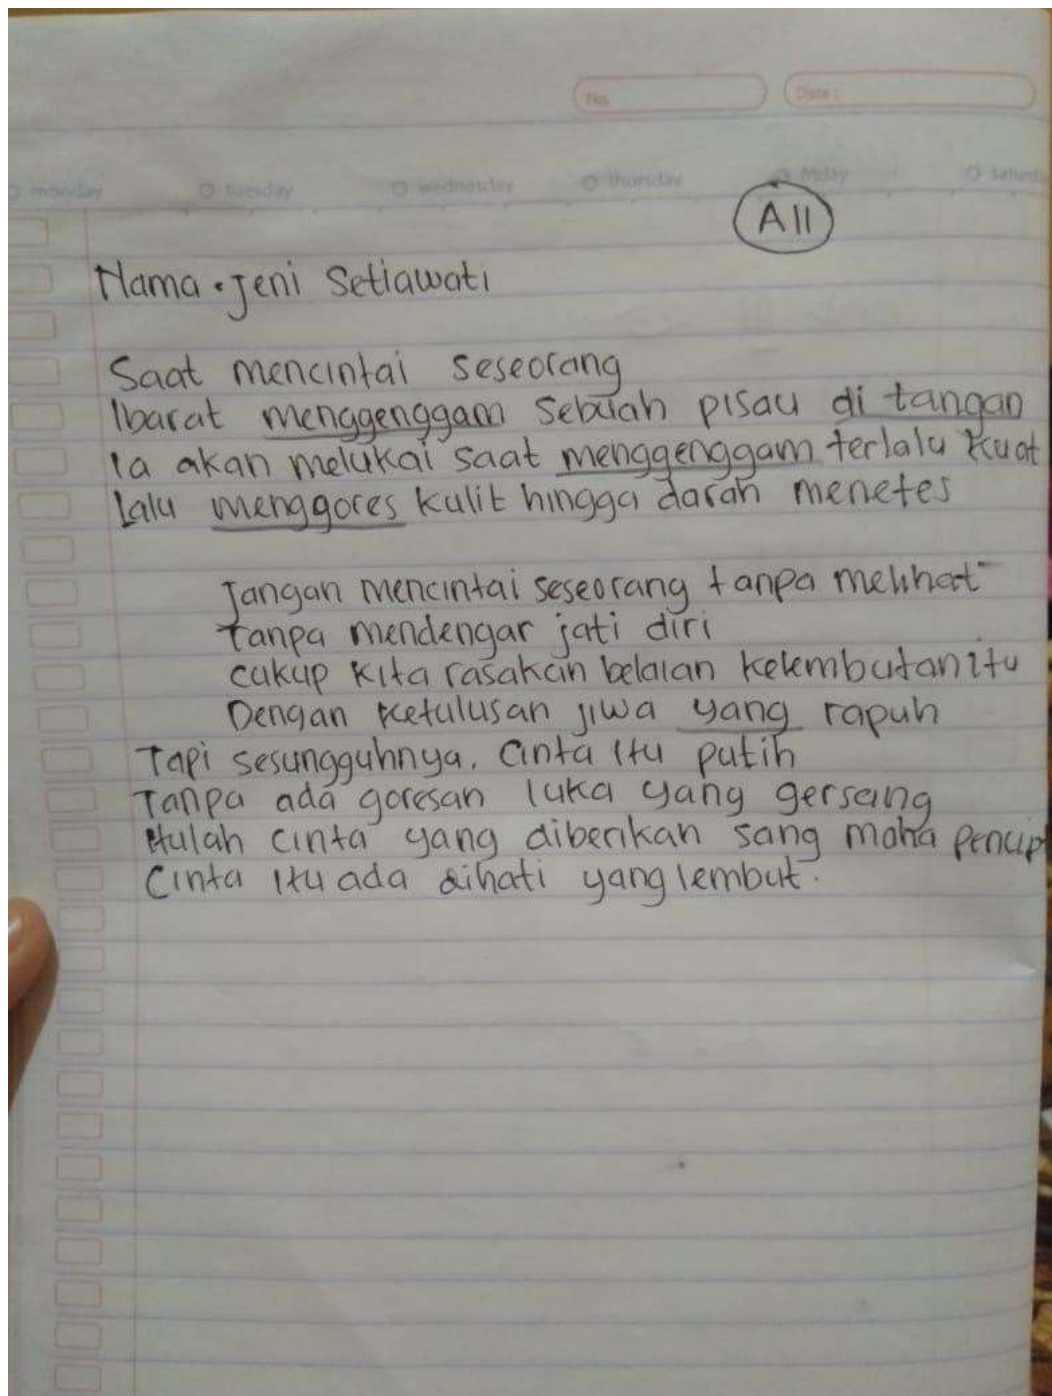 No.
Date :
monday tuesday wednesday thursday friday
A11
Nama . Jeni Setiawati
Saat mencintai seseorang
Ibarat menggenggam sebuah pisau di tangan
Ia akan melukai saat menggenggam terlalu kuat
Lalu menggores kulit hingga darah menetes
Jangan mencintai seseorang tanpa melihat
Tanpa mendengar jati diri
cukup kita rasakan belaian kelembutan itu
Dengan ketulusan jiwa yang rapuh
Tapi sesungguhnya. Cinta itu putih
Tanpa ada goresan luka yang gersang
Itulah cinta yang diberikan sang maha pencip
Cinta itu ada dihati yang lembut.